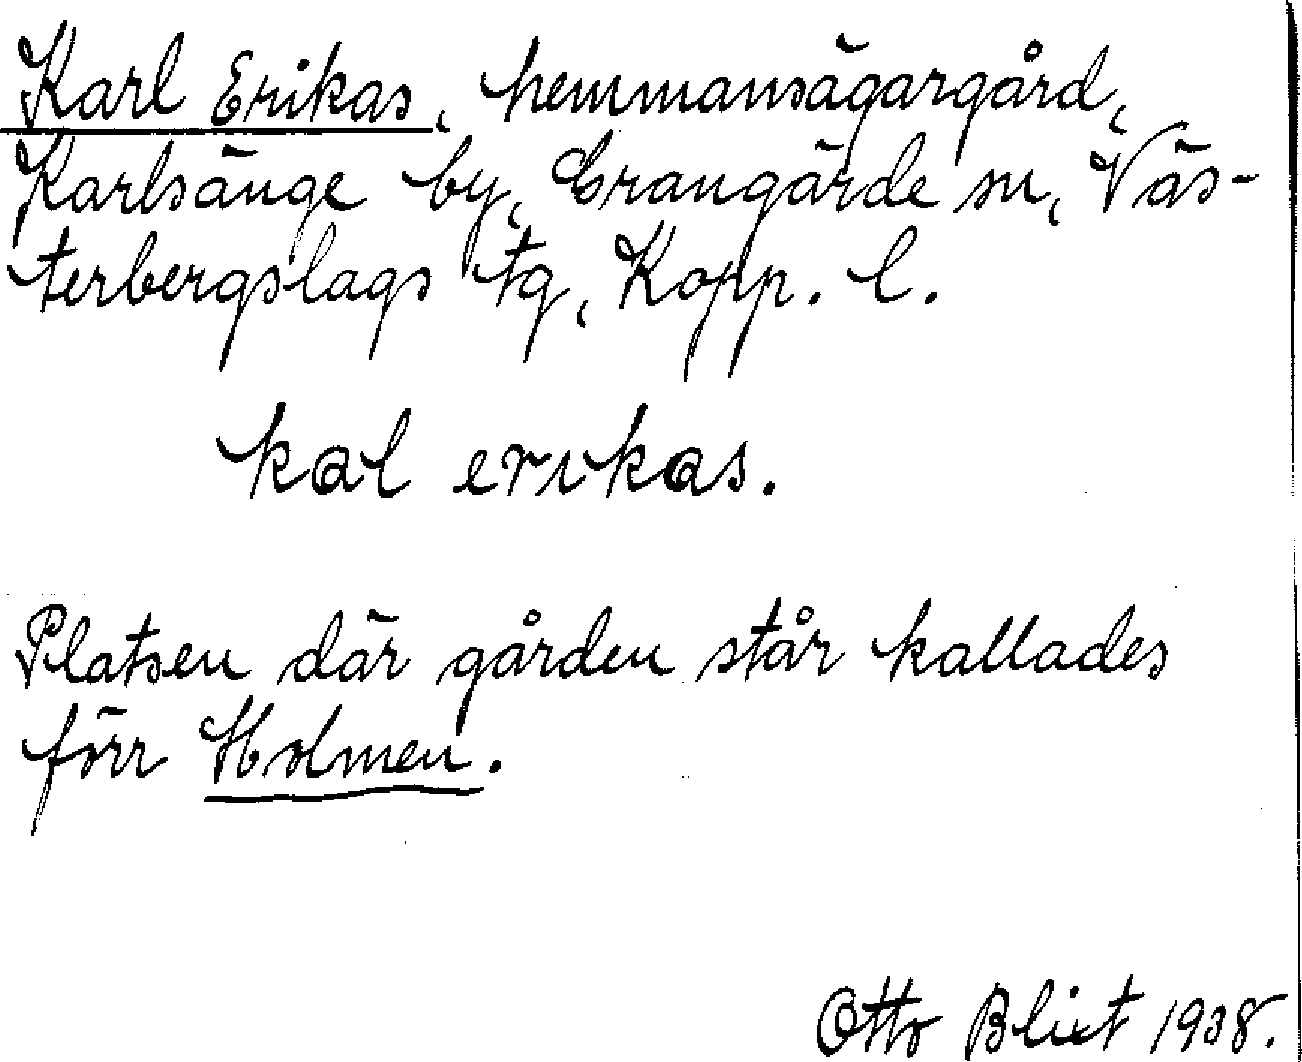 Karl Erikas, hemmansägargård,
Karlsänge by, Grangärde sn, Väs-
terbergslags tg, Kopp. l.
kal erikas.
Platsen där gården står kallades
förr Holmen.
Otto Blixt 1938.